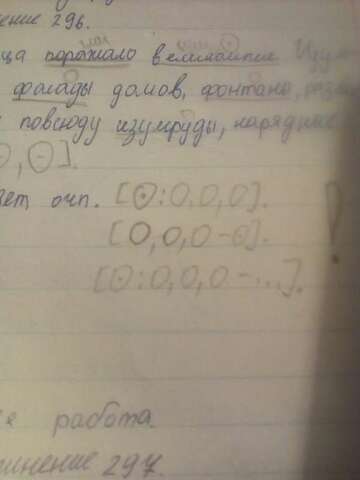 ение 296.
поражало великолепие
фасады домов, фонтаны,
повсюду изумруды, нарядные
⊙, ⊖].
[⊙: O, O, O].
[O, O, O – ⊙].
[⊙: O, O, O – ...].
работа.
нение 297.